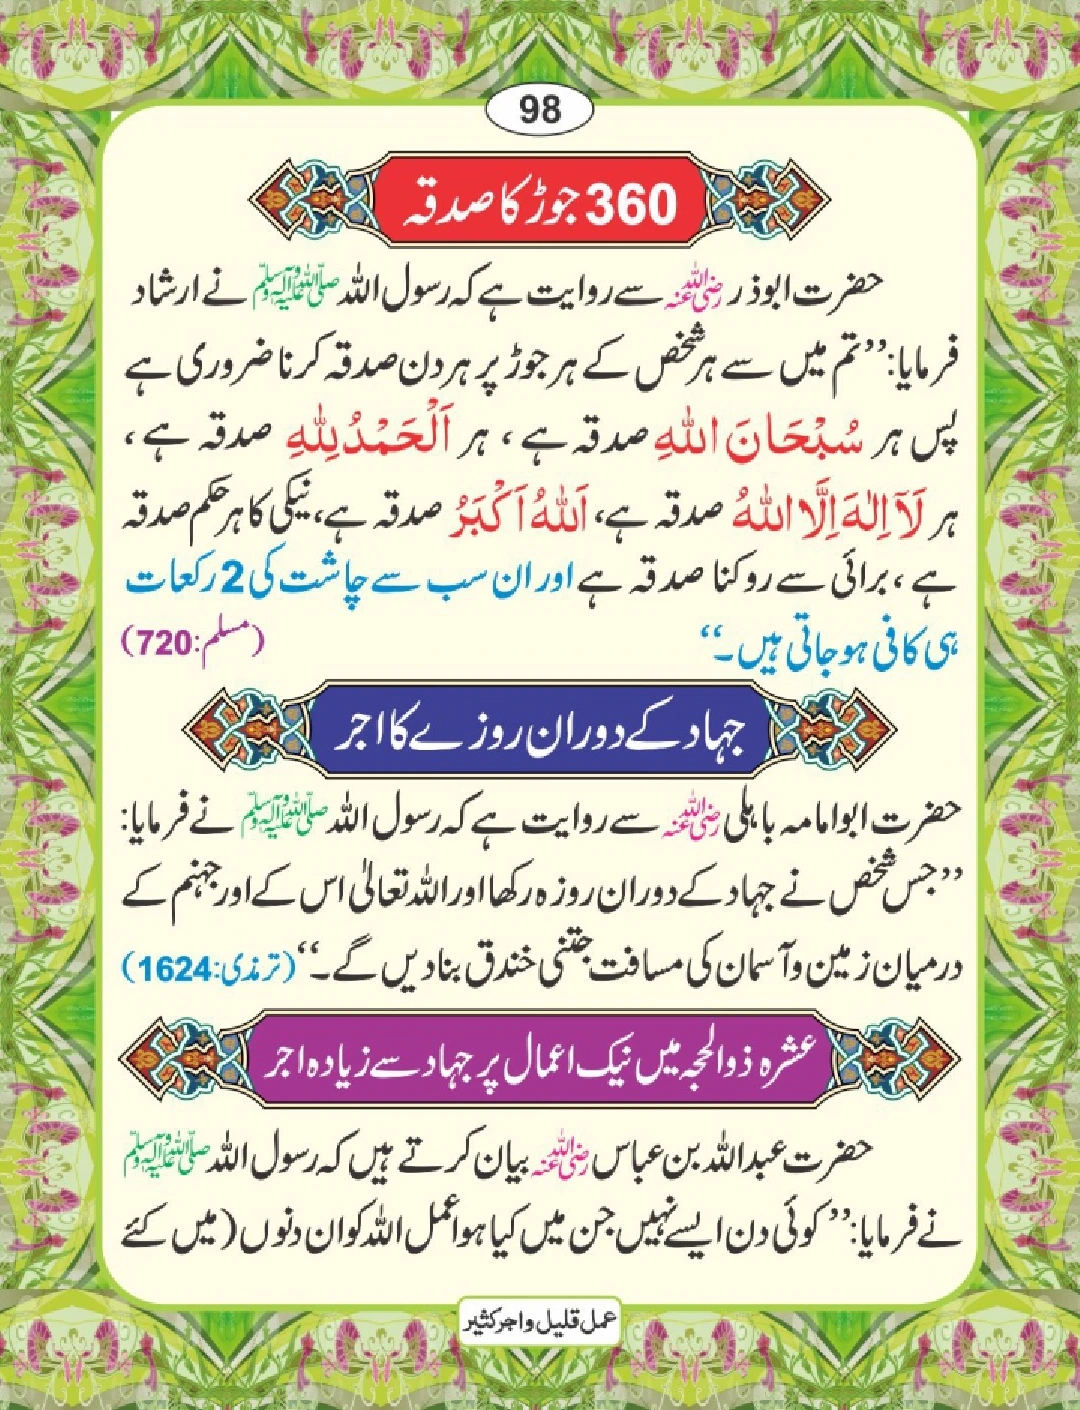 98
360 جوڑ کا صدقہ
حضرت ابوذر رضی اللہ عنہ سے روایت ہے کہ رسول اللہ صلی اللہ علیہ وسلم نے ارشاد
فرمایا: ’’تم میں سے ہر شخص کے ہر جوڑ پر ہر دن صدقہ کرنا ضروری ہے
پس ہر سُبْحَانَ اللهِ صدقہ ہے، ہر اَلْحَمْدُلِلّٰهِ صدقہ ہے،
ہر لَآ اِلٰهَ اِلَّا اللهُ صدقہ ہے، اَللهُ اَكْبَرُ صدقہ ہے، نیکی کا ہر حکم صدقہ
ہے، برائی سے روکنا صدقہ ہے اور ان سب سے چاشت کی 2 رکعات
ہی کافی ہو جاتی ہیں۔‘‘ (مسلم:720)
جہاد کے دوران روزے کا اجر
حضرت ابوامامہ باہلی رضی اللہ عنہ سے روایت ہے کہ رسول اللہ صلی اللہ علیہ وسلم نے فرمایا:
’’جس شخص نے جہاد کے دوران روزہ رکھا اور اللہ تعالیٰ اس کے اور جہنم کے
درمیان زمین و آسمان کی مسافت جتنی خندق بنا دیں گے۔‘‘ (ترمذی:1624)
عشرہ ذوالحجہ میں نیک اعمال پر جہاد سے زیادہ اجر
حضرت عبداللہ بن عباس رضی اللہ عنہ بیان کرتے ہیں کہ رسول اللہ صلی اللہ علیہ وسلم
نے فرمایا: ’’کوئی دن ایسے نہیں جن میں کیا ہوا عمل اللہ کو ان دنوں (میں کئے
عمل قلیل و اجر کثیر